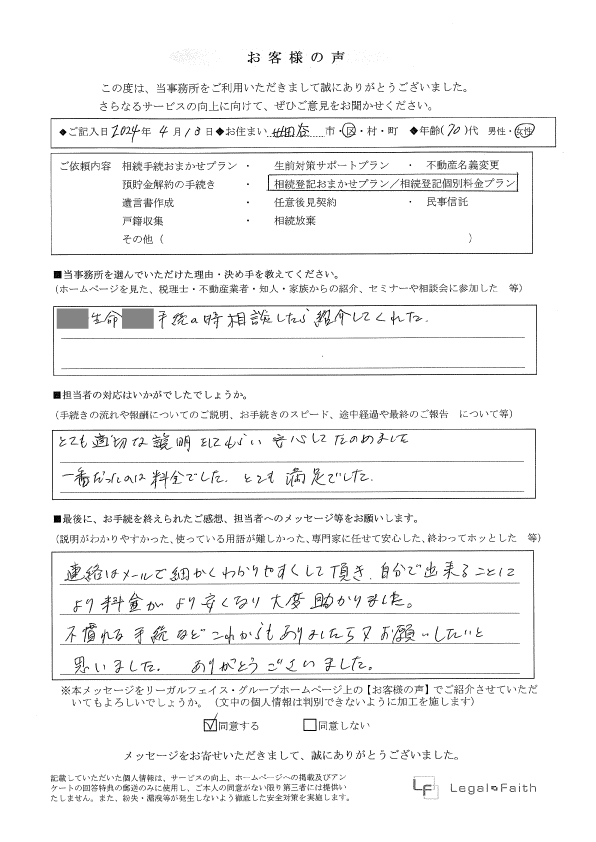 お客様の声
この度は、当事務所をご利用いただきまして誠にありがとうございました。
さらなるサービスの向上に向けて、ぜひご意見をお聞かせください。
◆ご記入日 2024年 4月 13日 ◆お住まい 世田谷 市・区・村・町 ◆年齢(70)代 男性・女性
ご依頼内容 相続手続おまかせプラン ・ 生前対策サポートプラン ・ 不動産名義変更
預貯金解約の手続き ・ 相続登記おまかせプラン/相続登記個別料金プラン
遺言書作成 ・ 任意後見契約 ・ 民事信託
戸籍収集 ・ 相続放棄
その他( )
■当事務所を選んでいただけた理由・決め手を教えてください。
(ホームページを見た、税理士・不動産業者・知人・家族からの紹介、セミナーや相談会に参加した 等)
生命 手続の時相談したら紹介してくれた.
■担当者の対応はいかがでしたでしょうか。
(手続きの流れや報酬についてのご説明、お手続きのスピード、途中経過や最終のご報告 について等)
とても適切な説明をしてもらい安心してたのめました
一番だったのは料金でした. とても満足でした.
■最後に、お手続を終えられたご感想、担当者へのメッセージ等をお願いします。
(説明がわかりやすかった、使っている用語が難しかった、専門家に任せて安心した、終わってホッとした 等)
連絡はメールで細かくわかりやすくして頂き、自分で出来ることに
より料金がより安くなり大変助かりました。
不慣れな手続などこれからもありましたら又お願いしたいと
思いました. ありがとうございました。
※本メッセージをリーガルフェイス・グループホームページ上の【お客様の声】でご紹介させていただ
いてもよろしいでしょうか。(文中の個人情報は判別できないように加工を施します)
☑同意する □同意しない
メッセージをお寄せいただきまして、誠にありがとうございました。
記載していただいた個人情報は、サービスの向上、ホームページへの掲載及びアン
ケートの回答特典の郵送のみに使用し、ご本人の同意がない限り第三者には提供い
たしません。また、紛失・漏洩等が発生しないよう徹底した安全対策を実施します。
LF Legal Faith